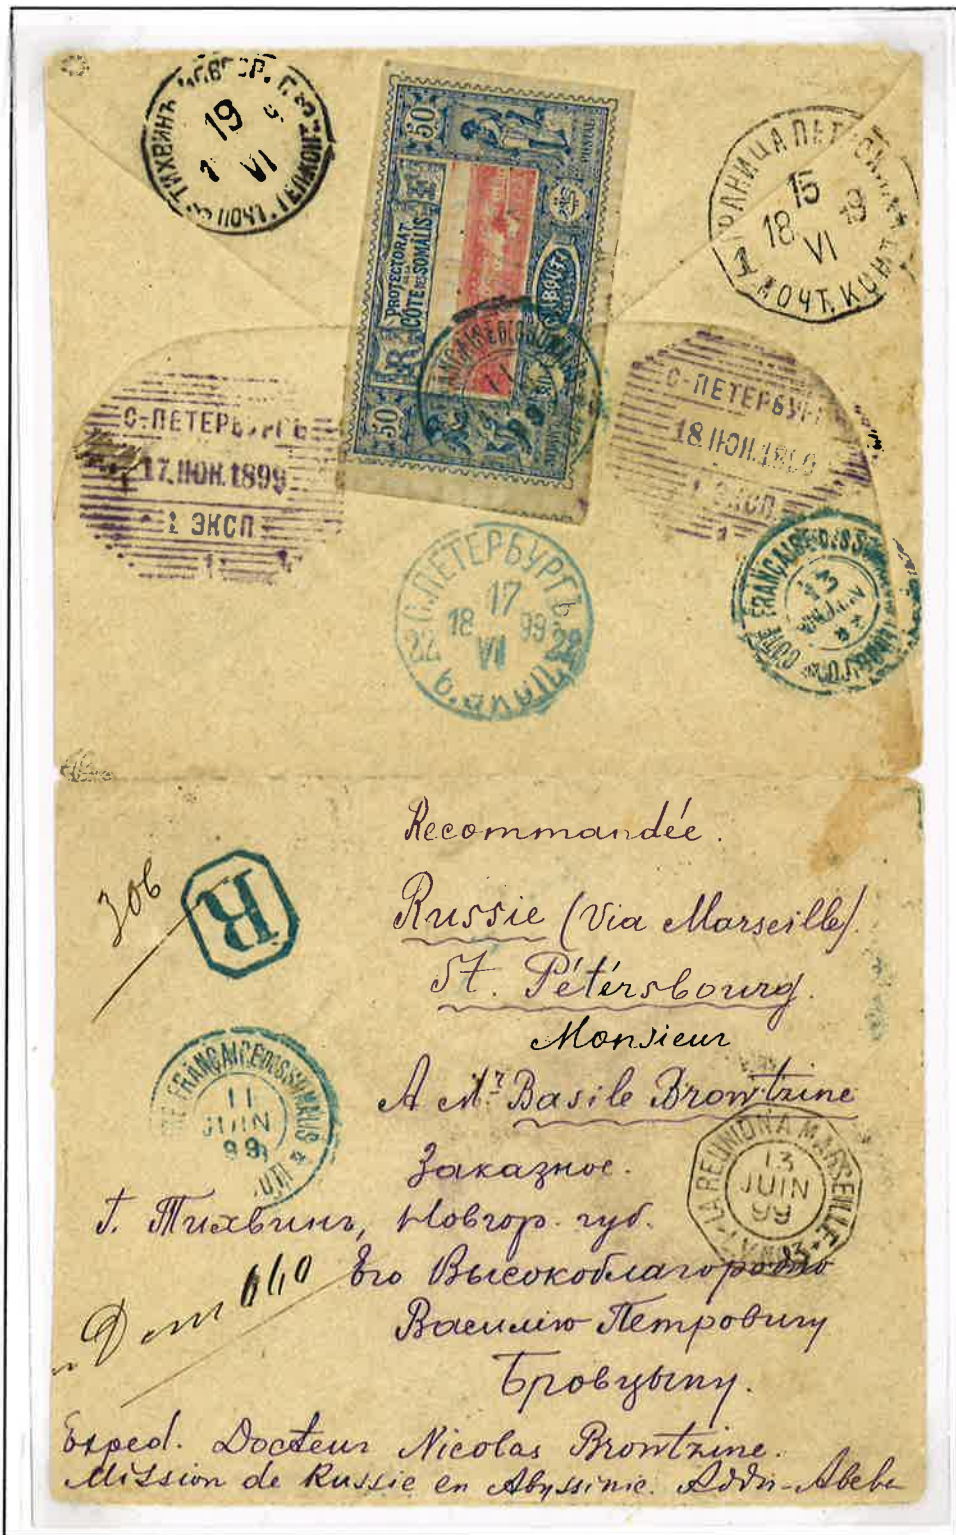 ТИХВИНЪ
19
VI
50
PROTECTORAT
DE LA
CÔTE DES SOMALIS
R F
DJIBOUTI
50
ГРАНИЦА
15
18
VI
ПОЧТ. КОНТ.
С-ПЕТЕРБУРГЪ
17. ИЮН. 1899
1 ЭКСП
1
С-ПЕТЕРБУРГ
18 ИЮН. 1899
1 ЭКСП
1
С. ПЕТЕРБУРГЪ
17
18 99
VI
22 22
COTE FRANÇAISE DES SOMALIS
JUIN
Recommandée.
306
R
Russie (Via Marseille).
St. Pétérsbourg.
Monsieur
A Mr Basile Browtzine
COTE FRANÇAISE DES SOMALIS
11
JUIN
99
LA REUNION A MARSEILLE
13
JUIN
99
L.V. Nº3
Заказное.
г. Тихвинъ, Новгор. губ.
640
Его Высокоблагородію
Василію Петровичу
Бровцыну.
Exped. Docteur Nicolas Browtzine.
Mission de Russie en Abyssinie. Addis-Abeba